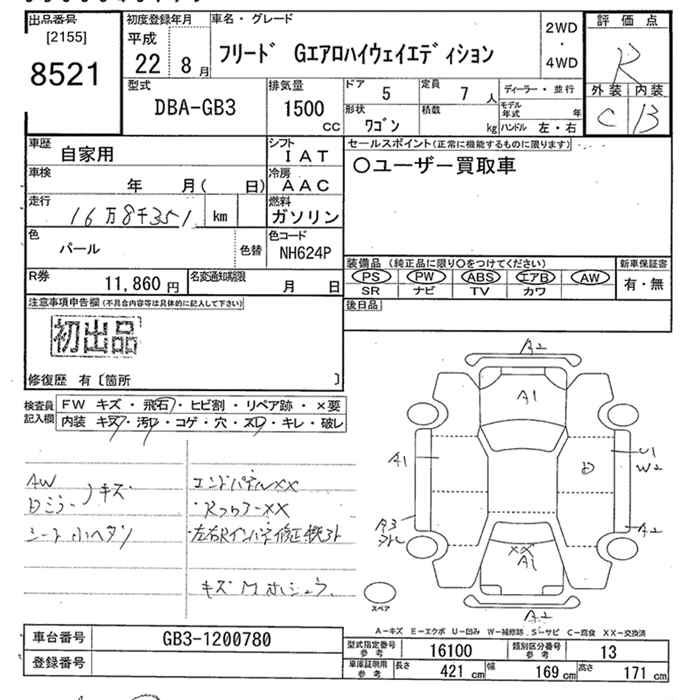 出品番号 初度登録年月 車名・グレード 評価点
[2155] 平成 2WD
8521 22年 8月 フリード Gエアロハイウェイエディション ・ R
4WD
型式 排気量 ドア 5 定員 7人 ディーラー・並行 外装 内装
DBA-GB3 1500cc 形状 ワゴン 積数 kg モデル年式 年 C B
ハンドル 左・右
車歴 自家用 シフト IAT セールスポイント(正常に機能するものに限ります)
車検 年 月( 日) 冷房 AAC ○ユーザー買取車
走行 16万8千351km 燃料 ガソリン
色 パール 色替 色コード NH624P
装備品(純正品に限り○をつけてください) 新車保証書
R券 11,860円 名変通知期限 月 日 PS PW ABS エアB AW 有・無
SR ナビ TV カワ
注意事項申告欄(不具合内容等は具体的に記入して下さい) 後日品
初出品
修復歴 有〔箇所 〕
検査員 FW キズ・飛石・ヒビ割・リペア跡・×要
記入欄 内装 キズ・汚レ・コゲ・穴・スレ・キレ・破レ
AW エンドパネルXX
Dミラー キズ ・RフロアーXX
シート小ヘタリ ・左右Rインパネ修正
キズ
A2
A1
A1 D U1
W2
A3 A2
XX
A1
スペア A2
A-キズ E-エクボ U-凹み W-補修跡 S-サビ C-腐食 XX-交換済
車台番号 GB3-1200780 型式指定番号 参考 16100 類別区分番号 参考 13
登録番号 車庫証明用 参考 長さ 421cm 幅 169cm 高さ 171cm